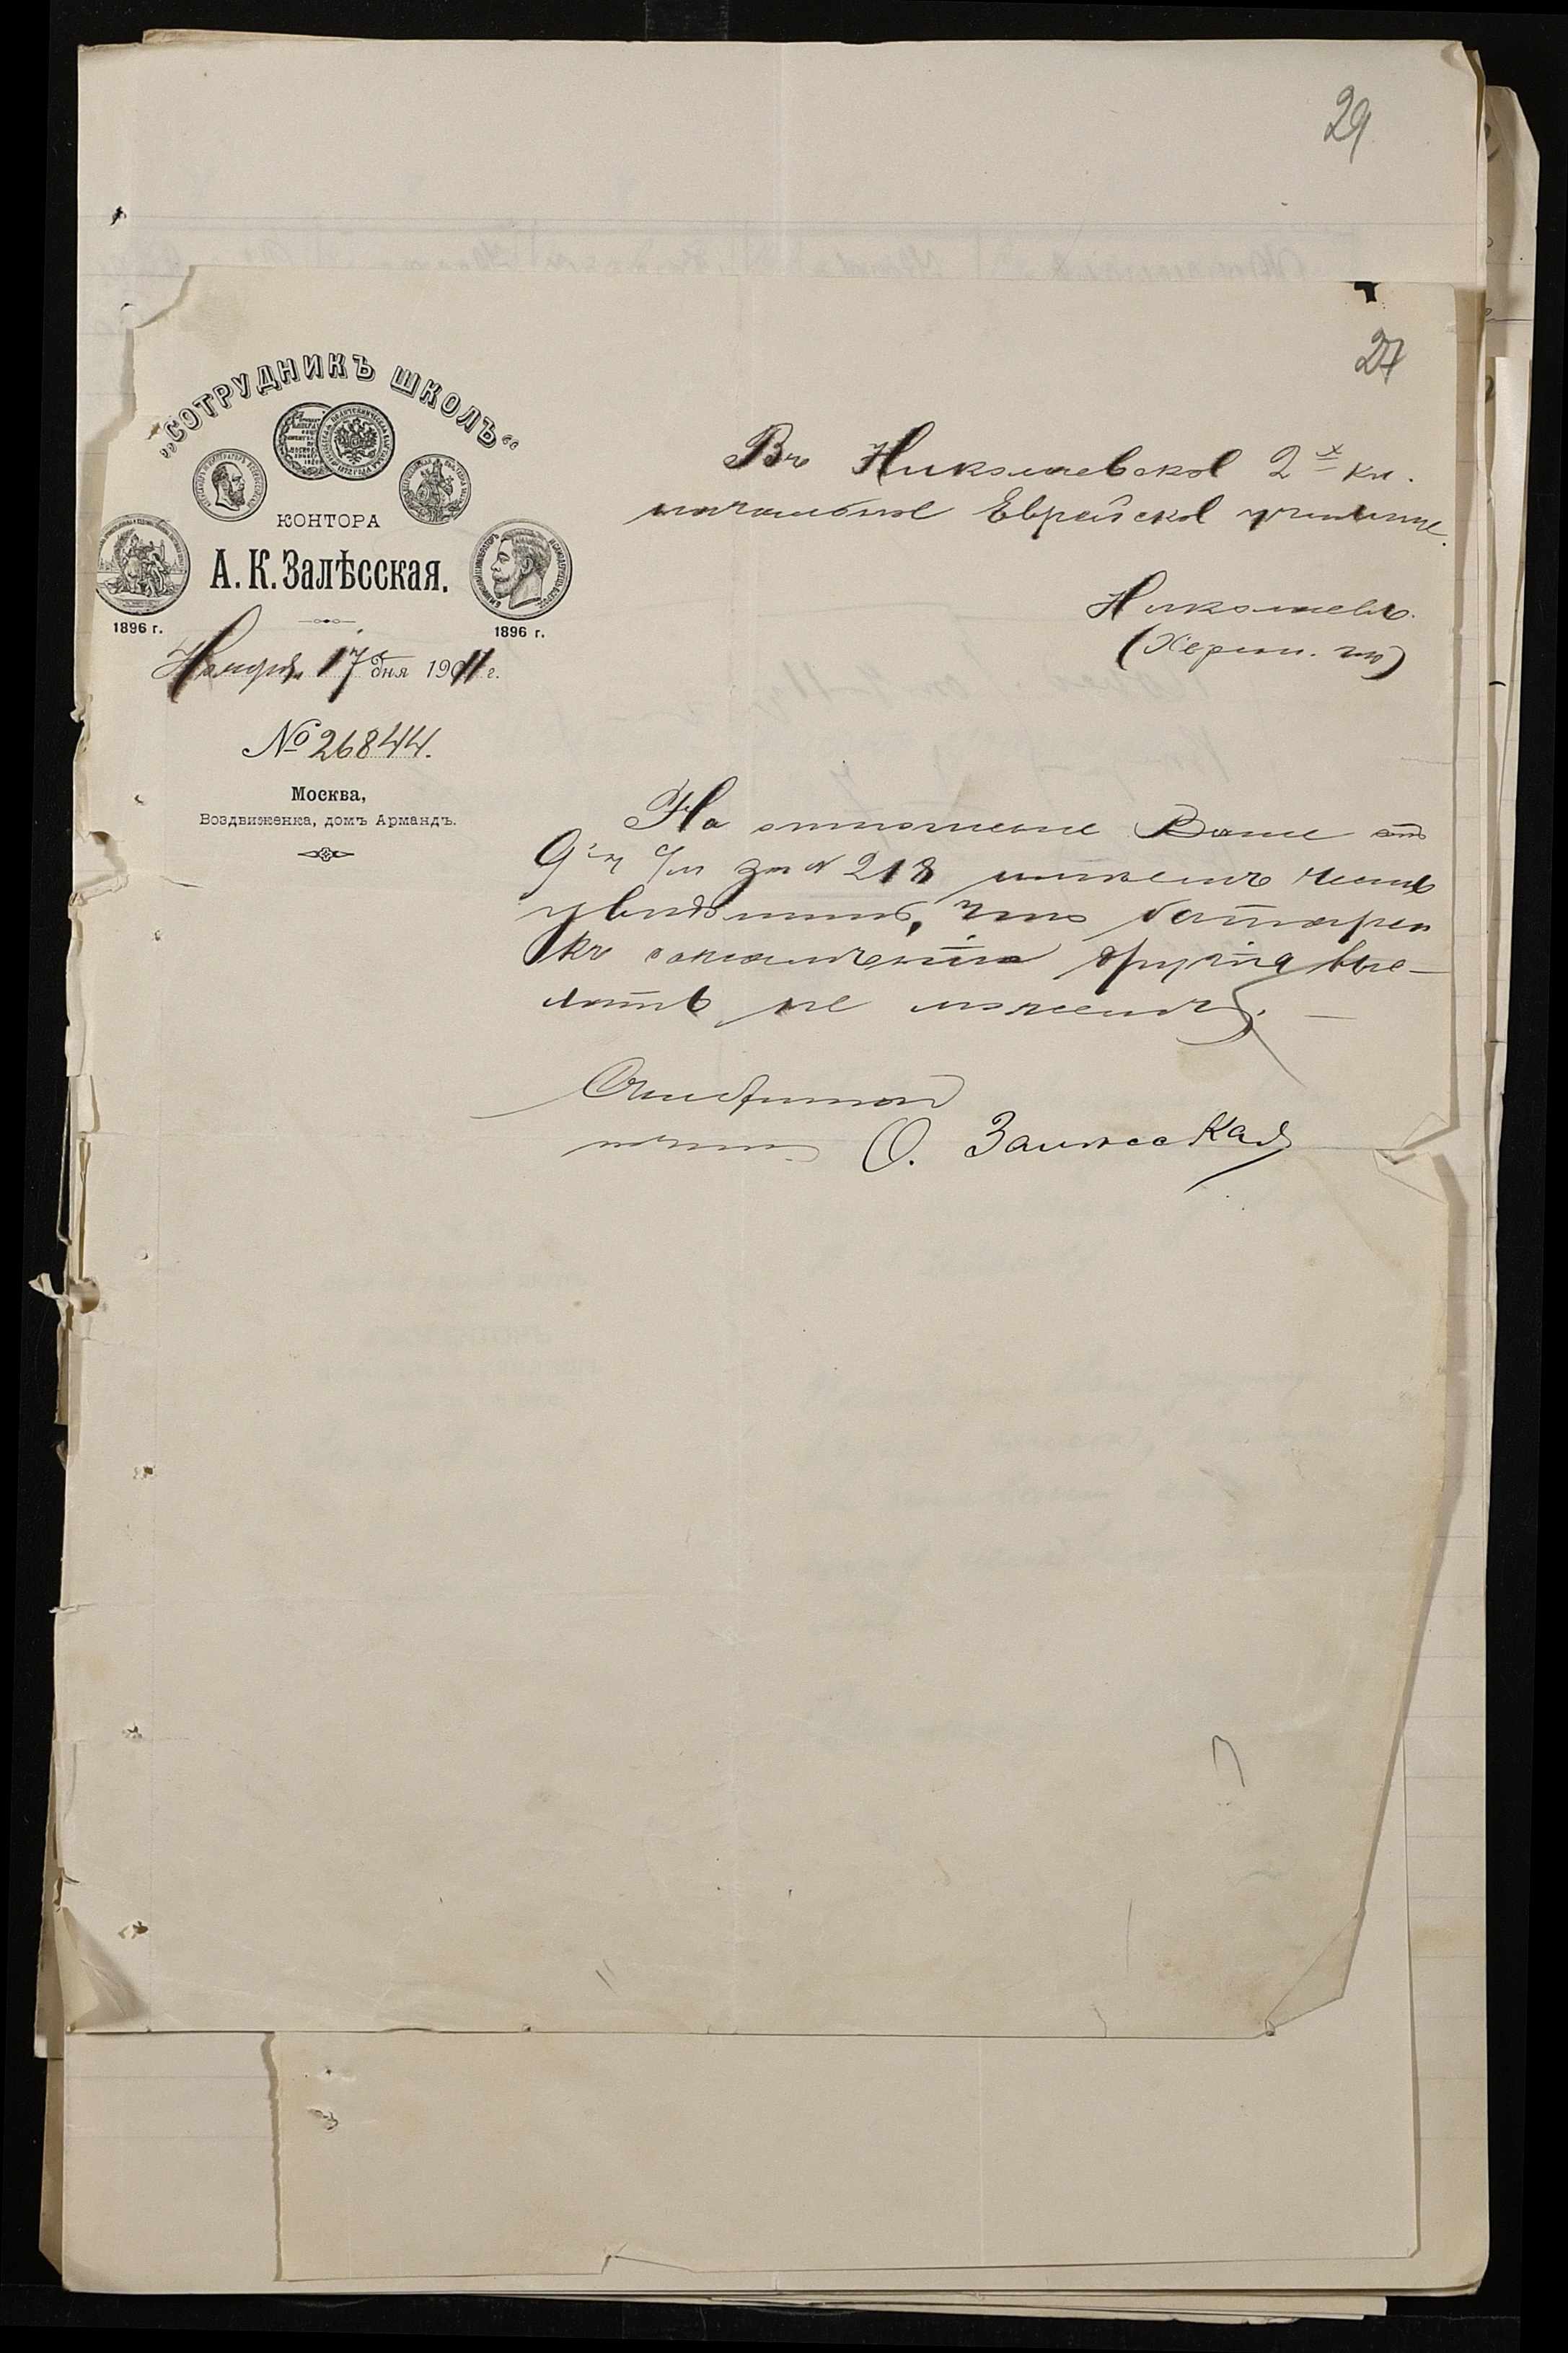 29
27
„СОТРУДНИКЪ ШКОЛЪ“
КОНТОРА
А. К. Залѣсская.
1896 г.
1896 г.
Ноября 17 дня 1901 г.
№ 26844.
Москва,
Воздвиженка, домъ Армандъ.
Въ Николаевское 2х кл.
начальное Еврейское училище.
Николаевъ.
(Херсон. губ)
На отношение Ваше отъ
9го с/м за № 218 имѣемъ честь
увѣдомить, что
къ дру
не можемъ.
О. Залѣсская